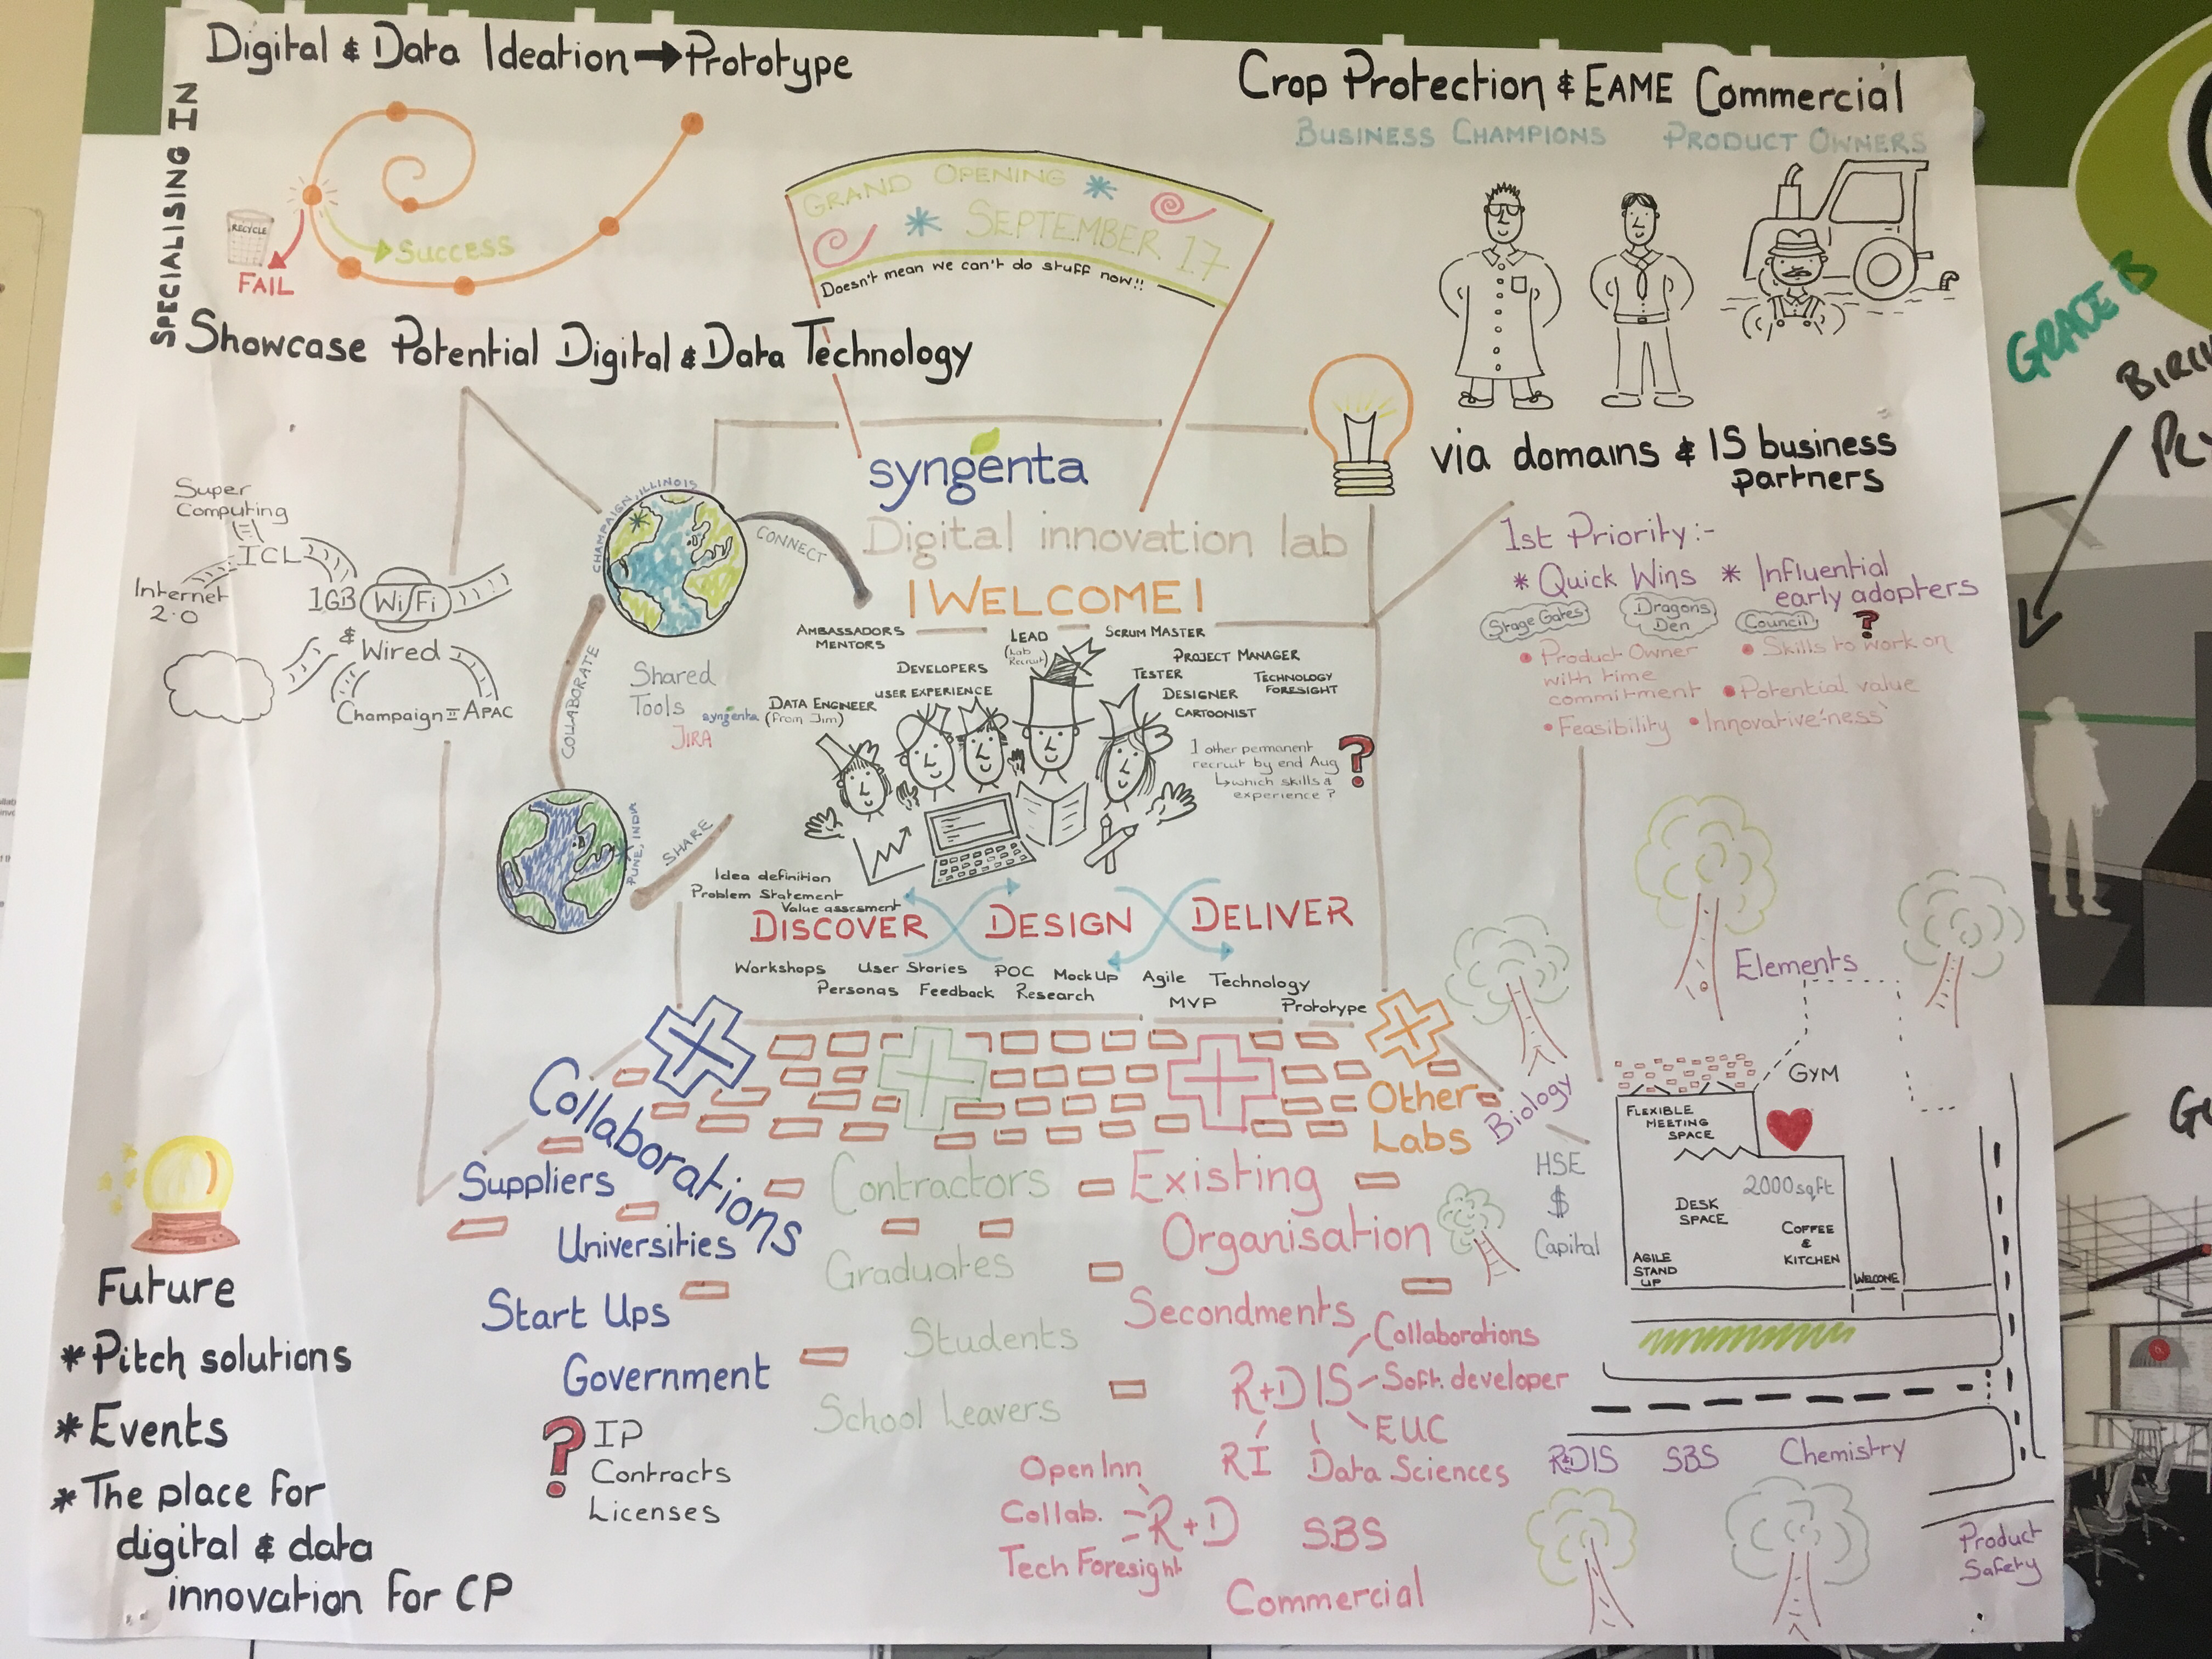 SPECIALISING IN
Digital & Data Ideation → Prototype
RECYCLE
FAIL
Success
Showcase Potential Digital & Data Technology
GRAND OPENING
SEPTEMBER 17
Doesn't mean we can't do stuff now!!
Crop Protection & EAME Commercial
BUSINESS CHAMPIONS PRODUCT OWNERS
via domains & IS business
partners
1st Priority:-
* Quick Wins * Influential
early adopters
Stage Gates Dragons
Den Council ?
• Product Owner
with time
commitment
• Skills to work on
• Potential value
• Feasibility • Innovative'ness'
Super
Computing
ICL
Internet
2.0
1GB WiFi
& Wired
Champaign = APAC
CHAMPAIGN, ILLINOIS
CONNECT
COLLABORATE
PUNE, INDIA
SHARE
Shared
Tools
syngenta
JIRA
syngenta
Digital innovation lab
!WELCOME!
AMBASSADORS
MENTORS
LEAD
(Lab
Recruit)
SCRUM MASTER
DEVELOPERS
PROJECT MANAGER
TESTER
TECHNOLOGY
FORESIGHT
USER EXPERIENCE
DESIGNER
DATA ENGINEER
(from Jim)
CARTOONIST
1 other permanent
recruit by end Aug
↳ which skills &
experience?
?
Idea definition
Problem Statement
Value assesment
DISCOVER DESIGN DELIVER
Workshops User Stories POC Mock Up Agile Technology
Personas Feedback Research MVP Prototype
Collaborations
Suppliers
Universities
Start Ups
Government
? IP
Contracts
Licenses
Contractors
Graduates
Students
School Leavers
Existing
Organisation
Secondments
R+DIS
Collaborations
Soft. developer
EUC
Data Sciences
RI
R+D
Open Inn
Collab.
Tech Foresight
SBS
Commercial
Other
Labs
Biology
HSE
$
Capital
Elements
GYM
FLEXIBLE
MEETING
SPACE
2000sqft
DESK
SPACE
COFFEE
&
KITCHEN
AGILE
STAND
UP
WELCOME
R+DIS SBS Chemistry
Product
Safety
Future
* Pitch solutions
* Events
* The place for
digital & data
innovation for CP
GRACE B